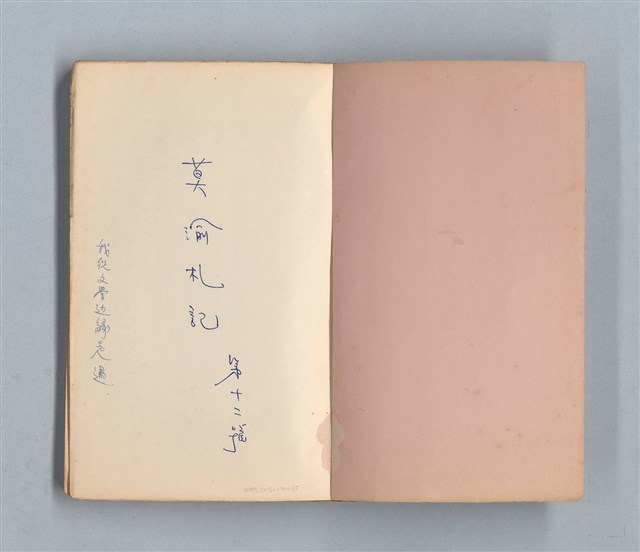 莫渝札記
第十二號
我從文學边緣走過